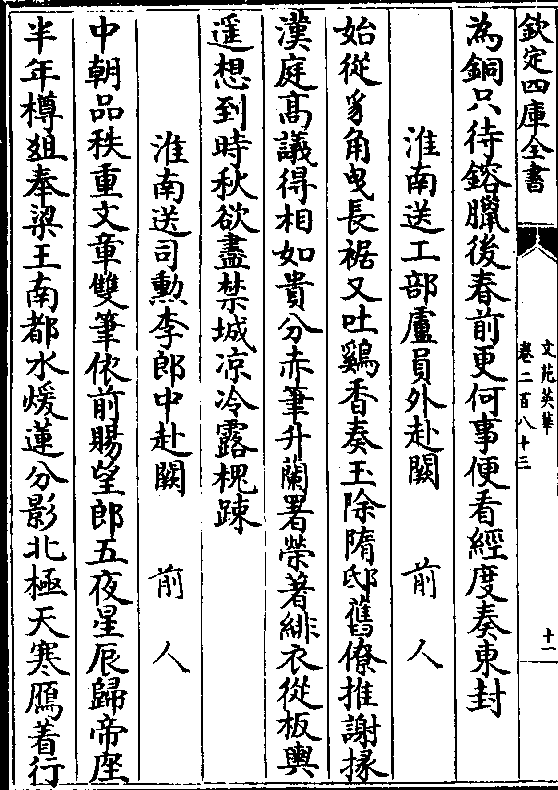 欽定四庫全書
文苑英華
卷二百八十三
十一
為銅只待鎔臘後春前更何事便看經度奏東封
淮南送工部盧員外赴闕 前人
始從豸角曳長裾又吐鷄香奏玉除隋邸舊僚推謝掾
漢庭髙議得相如貴分赤筆升蘭署榮著緋衣從板輿
遥想到時秋欲盡禁城凉冷露槐踈
淮南送司勲李郎中赴闕 前人
中朝品秩重文章雙筆依前賜望郎五夜星辰歸帝座
半年樽俎奉梁王南都水煖蓮分影北極天寒鴈着行